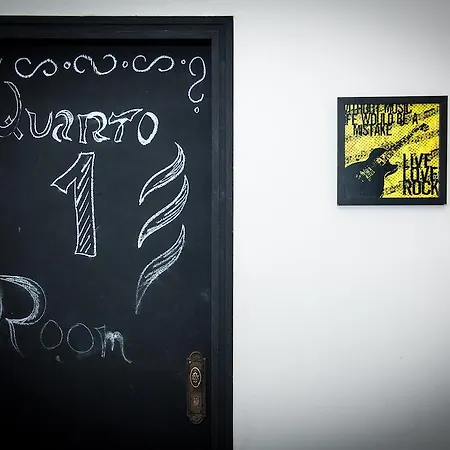 QUARTO
1
ROOM
WITHOUT MUSIC
LIFE WOULD BE A
MISTAKE
LIVE
LOVE
ROCK